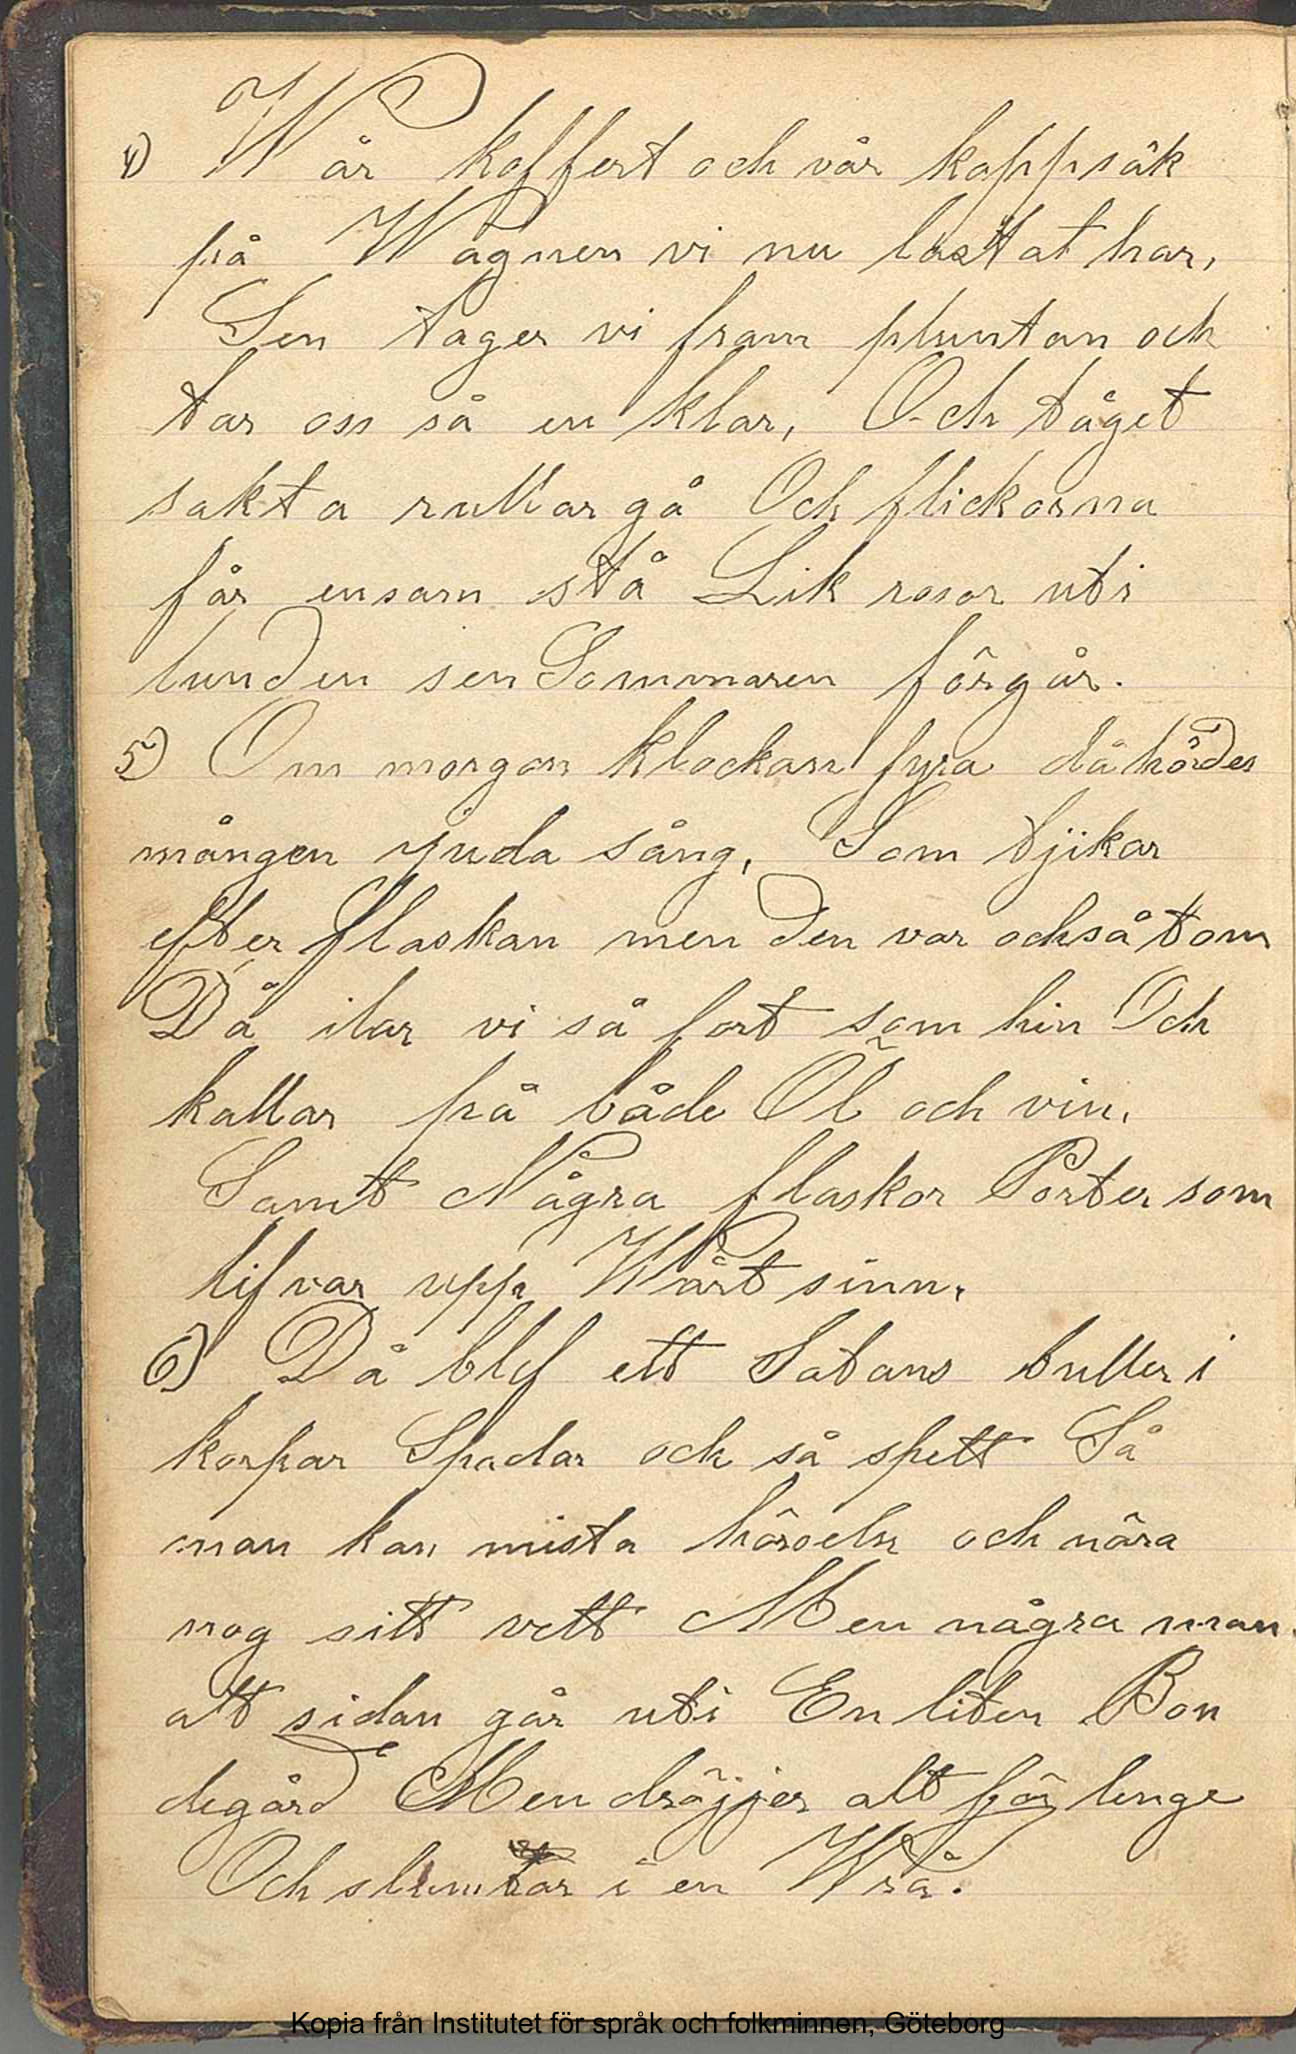 4) Wår koffert och vår kappsäk
på Wagnen vi nu lastat har,
Sen tager vi fram pluntan och
tar oss så en klar, Och tåget
sakta rullar gå Och flickorna
får ensam stå Lik rosor uti
lunden sen Sommaren förgår.
5) Om morgon klockan fyra då hördes
mången juda sång, Som tjikar
efter flaskan men den var också tom
Då ilar vi så fort som hin Och
kallar på både Öl och vin.
Samt Några flaskor Porter som
lifvar upp Wårt sinn.
6) Då blef ett Satans buller i
korpar Spadar och så spett Så
man kan mista hörseln och nära
nog sitt vett Men några man
att sidan går uti En liten Bon
degård Men dröjjer alt för lenge
Och slumtar i en Wrå.
Kopia från Institutet för språk och folkminnen, Göteborg